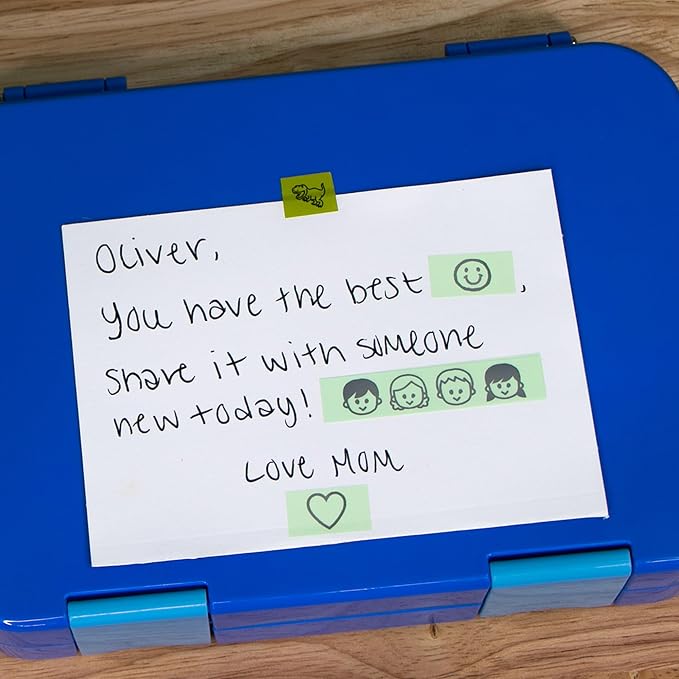 Oliver,
You have the best ☺,
share it with someone
new today!
Love Mom
♡